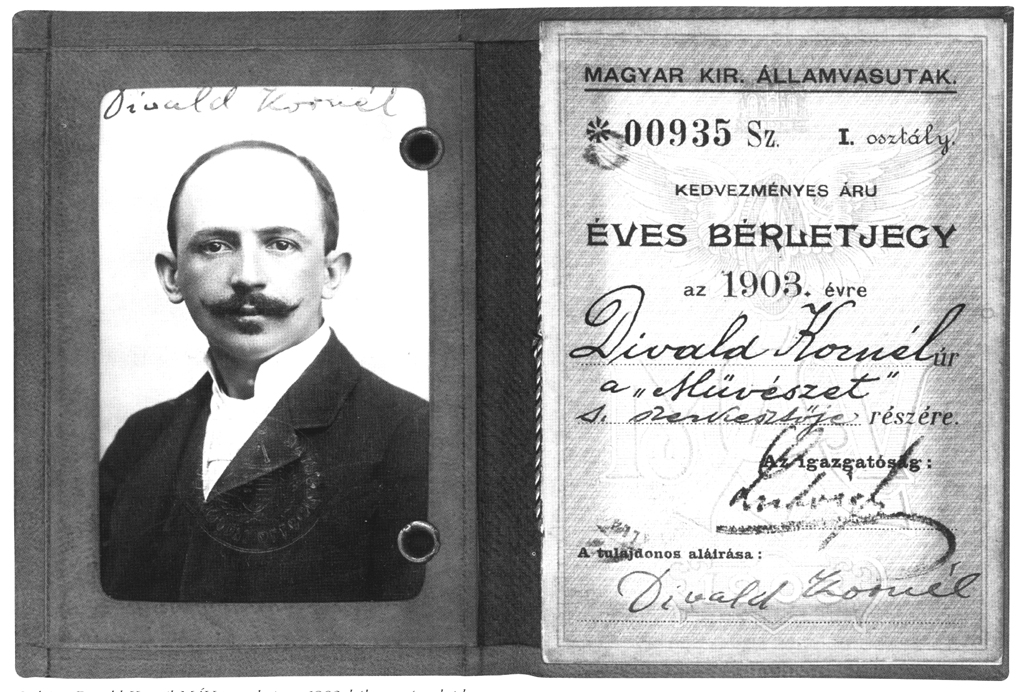 Divald Kornél
MAGYAR KIR. ÁLLAMVASUTAK.
*00935 Sz. I. osztály.
KEDVEZMÉNYES ÁRU
ÉVES BÉRLETJEGY
az 1903. évre
Divald Kornél úr
a „Művészet"
s. szerkesztője részére.
Az igazgatóság:
Ludvigh
A tulajdonos aláírása:
Divald Kornél